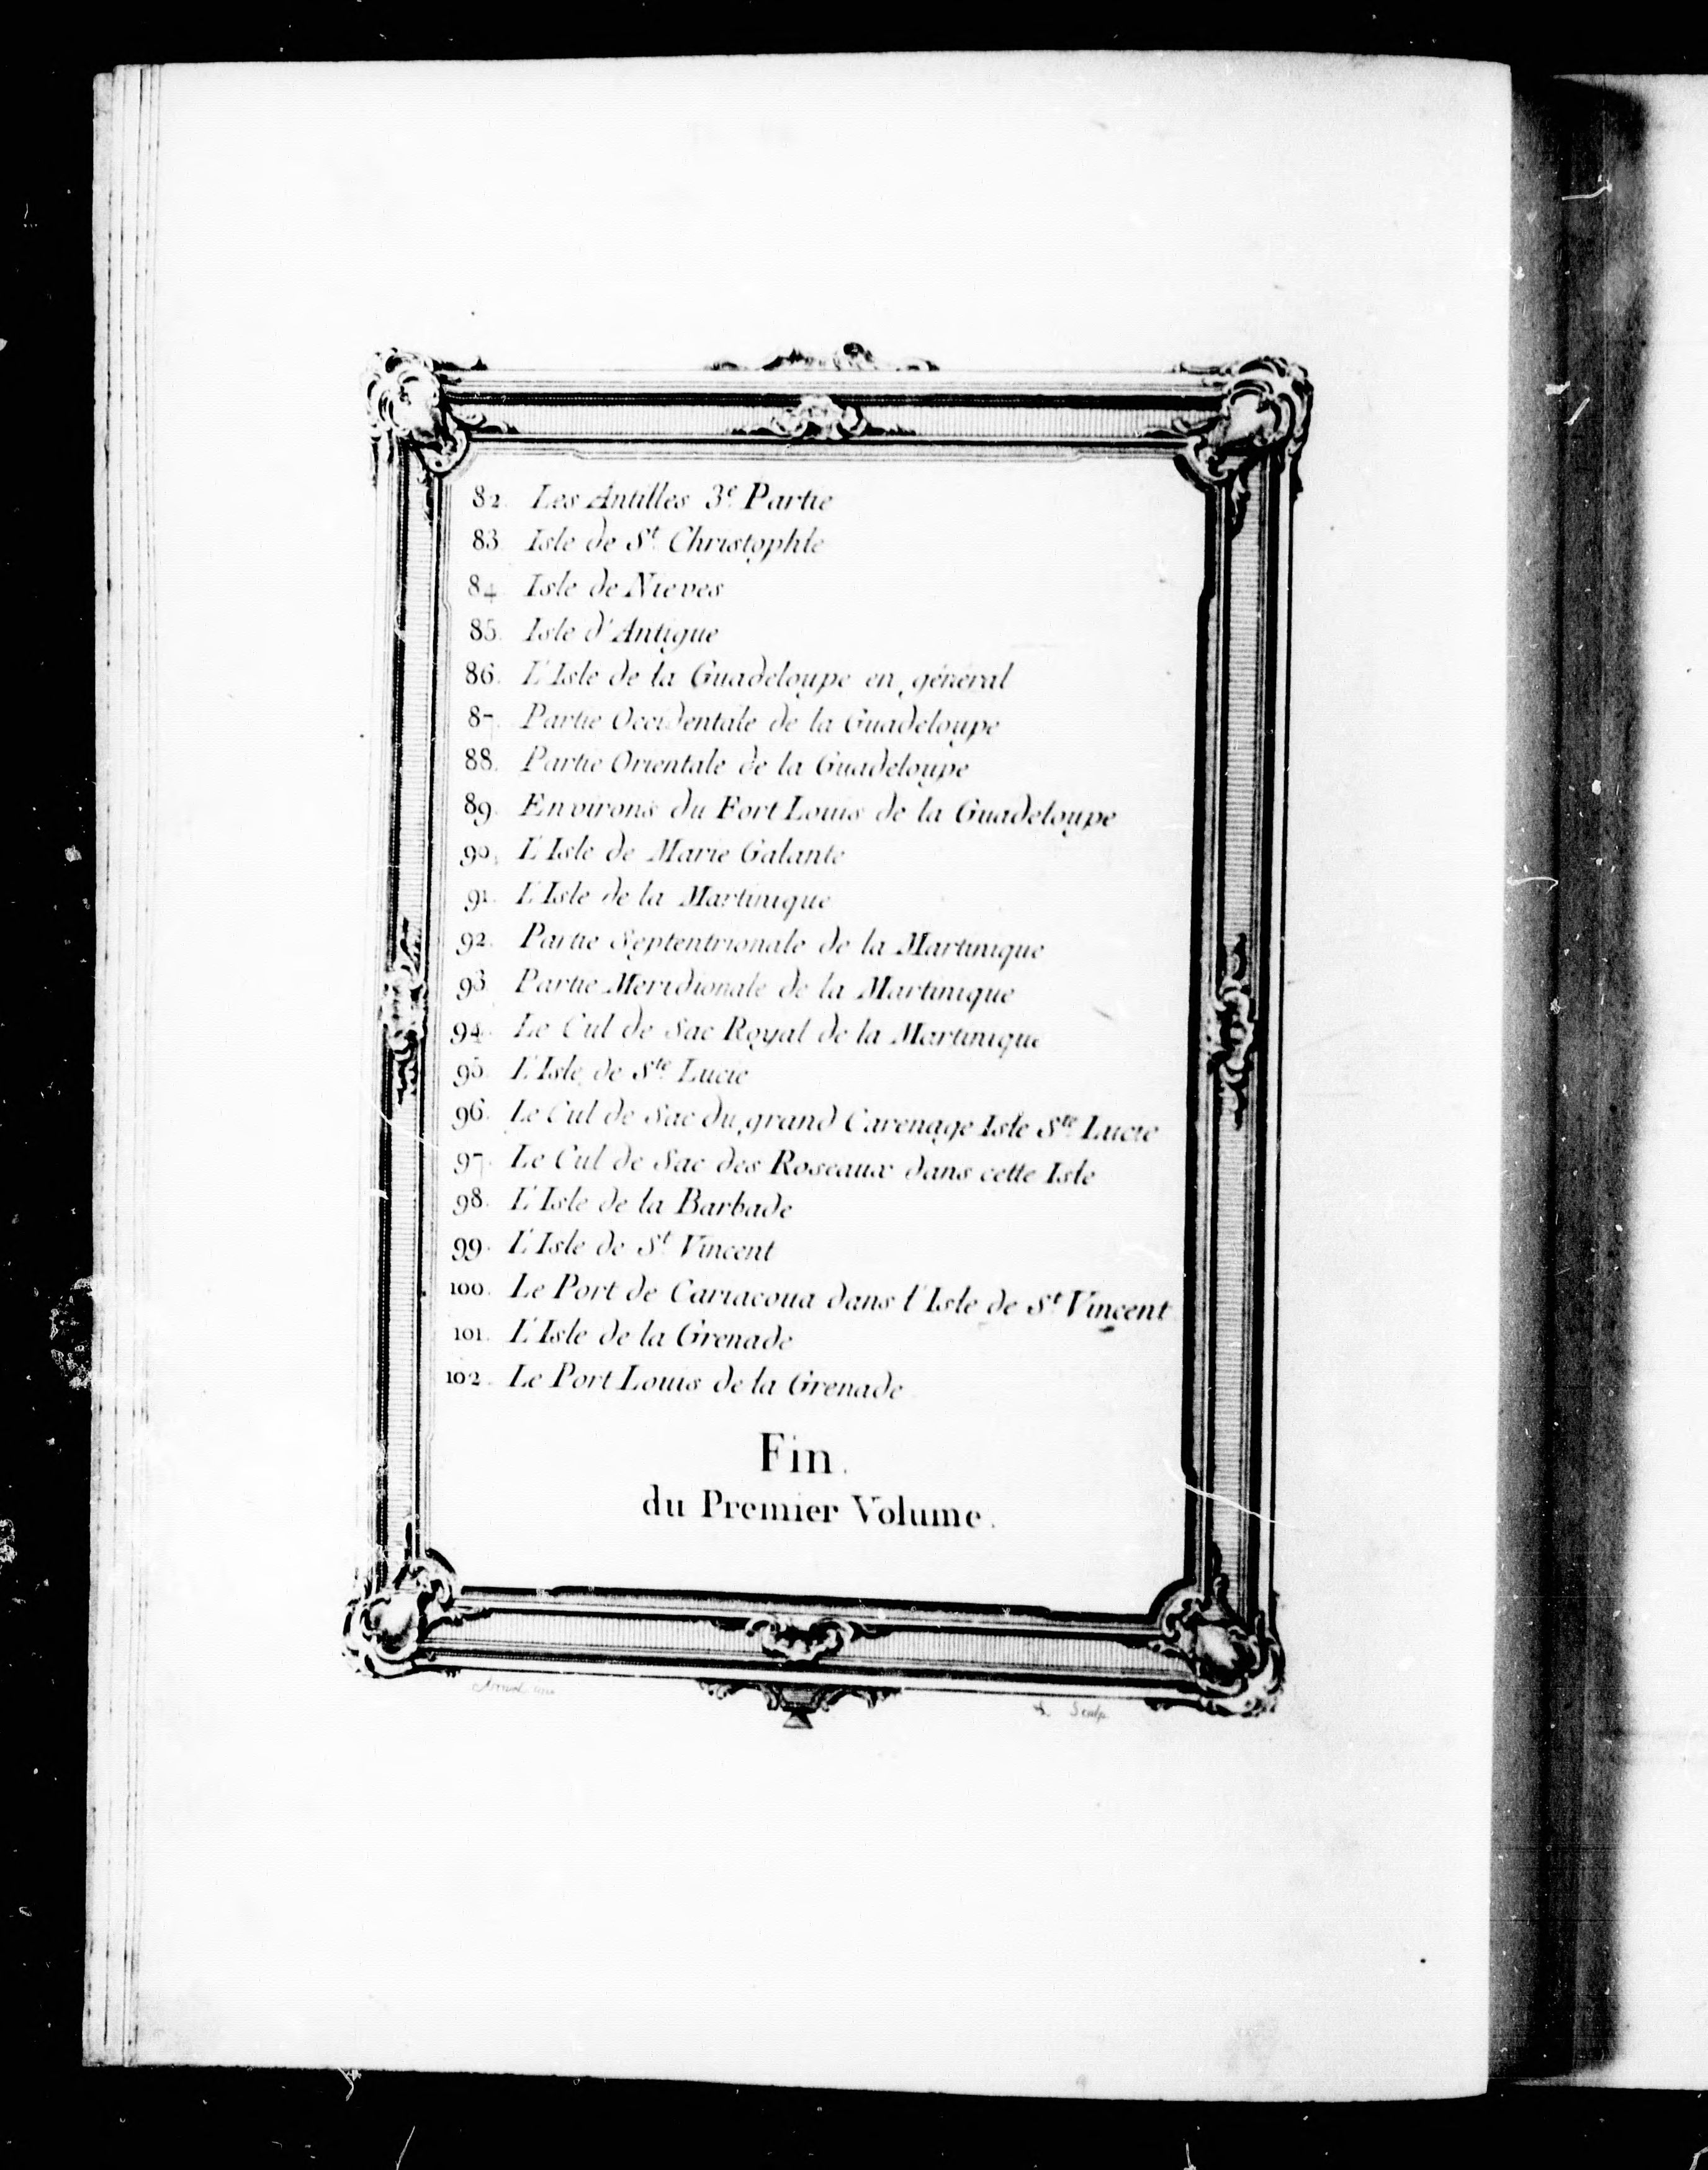 82. Les Antilles 3.e Partie
83. Isle de St. Christophle
84. Isle de Nieves
85. Isle d'Antigue
86. L'Isle de la Guadeloupe en général
87. Partie Occidentale de la Guadeloupe
88. Partie Orientale de la Guadeloupe
89. Environs du Fort Louis de la Guadeloupe
90. L'Isle de Marie Galante
91. L'Isle de la Martinique
92. Partie Septentrionale de la Martinique
93. Partie Meridionale de la Martinique
94. Le Cul de Sac Royal de la Martinique
95. L'Isle de Ste. Lucie
96. Le Cul de Sac du grand Carenage Isle Ste. Lucie
97. Le Cul de Sac des Roseaux dans cette Isle
98. L'Isle de la Barbade
99. L'Isle de St. Vincent
100. Le Port de Cariacoua dans l'Isle de St. Vincent
101. L'Isle de la Grenade
102. Le Port Louis de la Grenade
Fin.
du Premier Volume.
Sculp